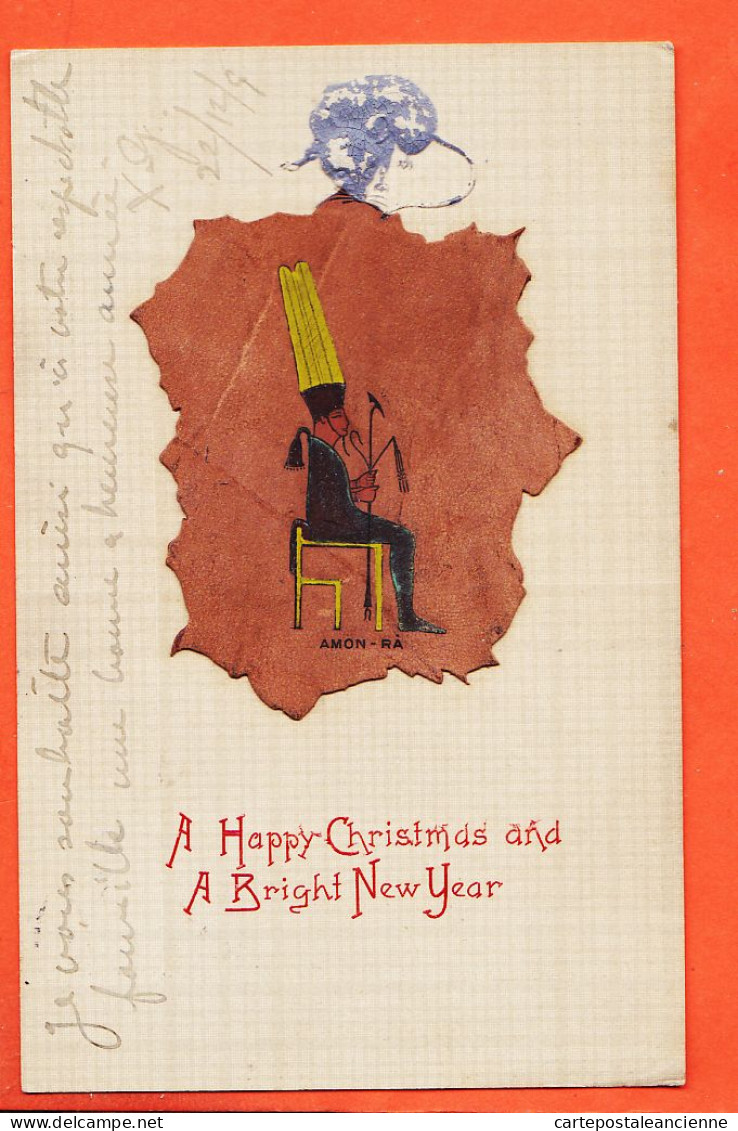 Je vous souhaite ainsi qu'à votre respectable
famille une bonne & heureuse année
22/12/9
AMON-RA
A Happy Christmas and
A Bright New Year
delcampe.net
cartepostaleancienne